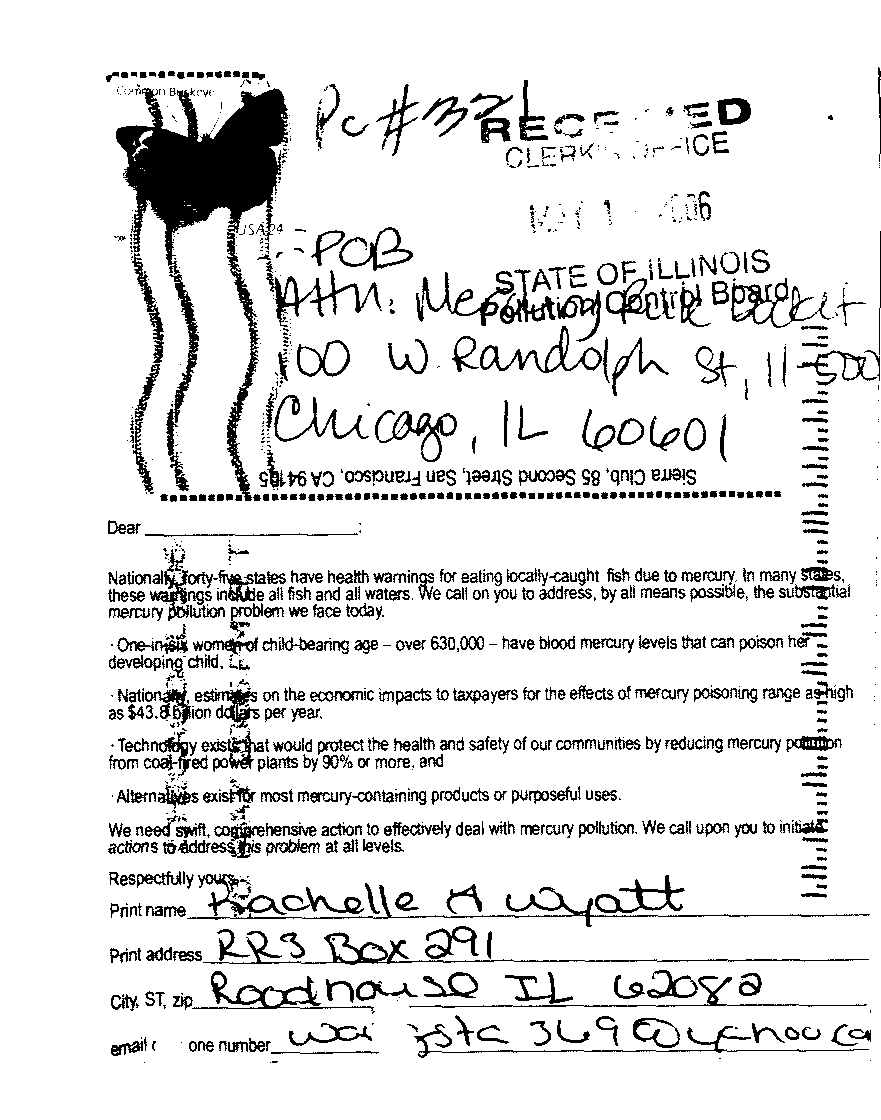 Common Buckeye
Pc #321
RECEIVED
CLERK'S OFFICE
MAY 1 2006
USA 24
PCB
STATE OF ILLINOIS
Pollution Control Board
Attn: Mercury Rule Docket
100 W. Randolph St, 11-500
Chicago, IL 60601
Sierra Club, 85 Second Street, San Francisco, CA 94105
Dear
Nationally, forty-five states have health warnings for eating locally-caught fish due to mercury. In many states,
these warnings include all fish and all waters. We call on you to address, by all means possible, the substantial
mercury pollution problem we face today.
· One-in-six women of child-bearing age – over 630,000 – have blood mercury levels that can poison her
developing child.
· Nationally, estimates on the economic impacts to taxpayers for the effects of mercury poisoning range as high
as $43.8 billion dollars per year.
· Technology exists that would protect the health and safety of our communities by reducing mercury pollution
from coal-fired power plants by 90% or more, and
· Alternatives exist for most mercury-containing products or purposeful uses.
We need swift, comprehensive action to effectively deal with mercury pollution. We call upon you to initiate
actions to address this problem at all levels.
Respectfully yours,
Print name Rachelle A Wyatt
Print address RR3 Box 291
City, ST, zip Roodhouse IL 62082
email one number